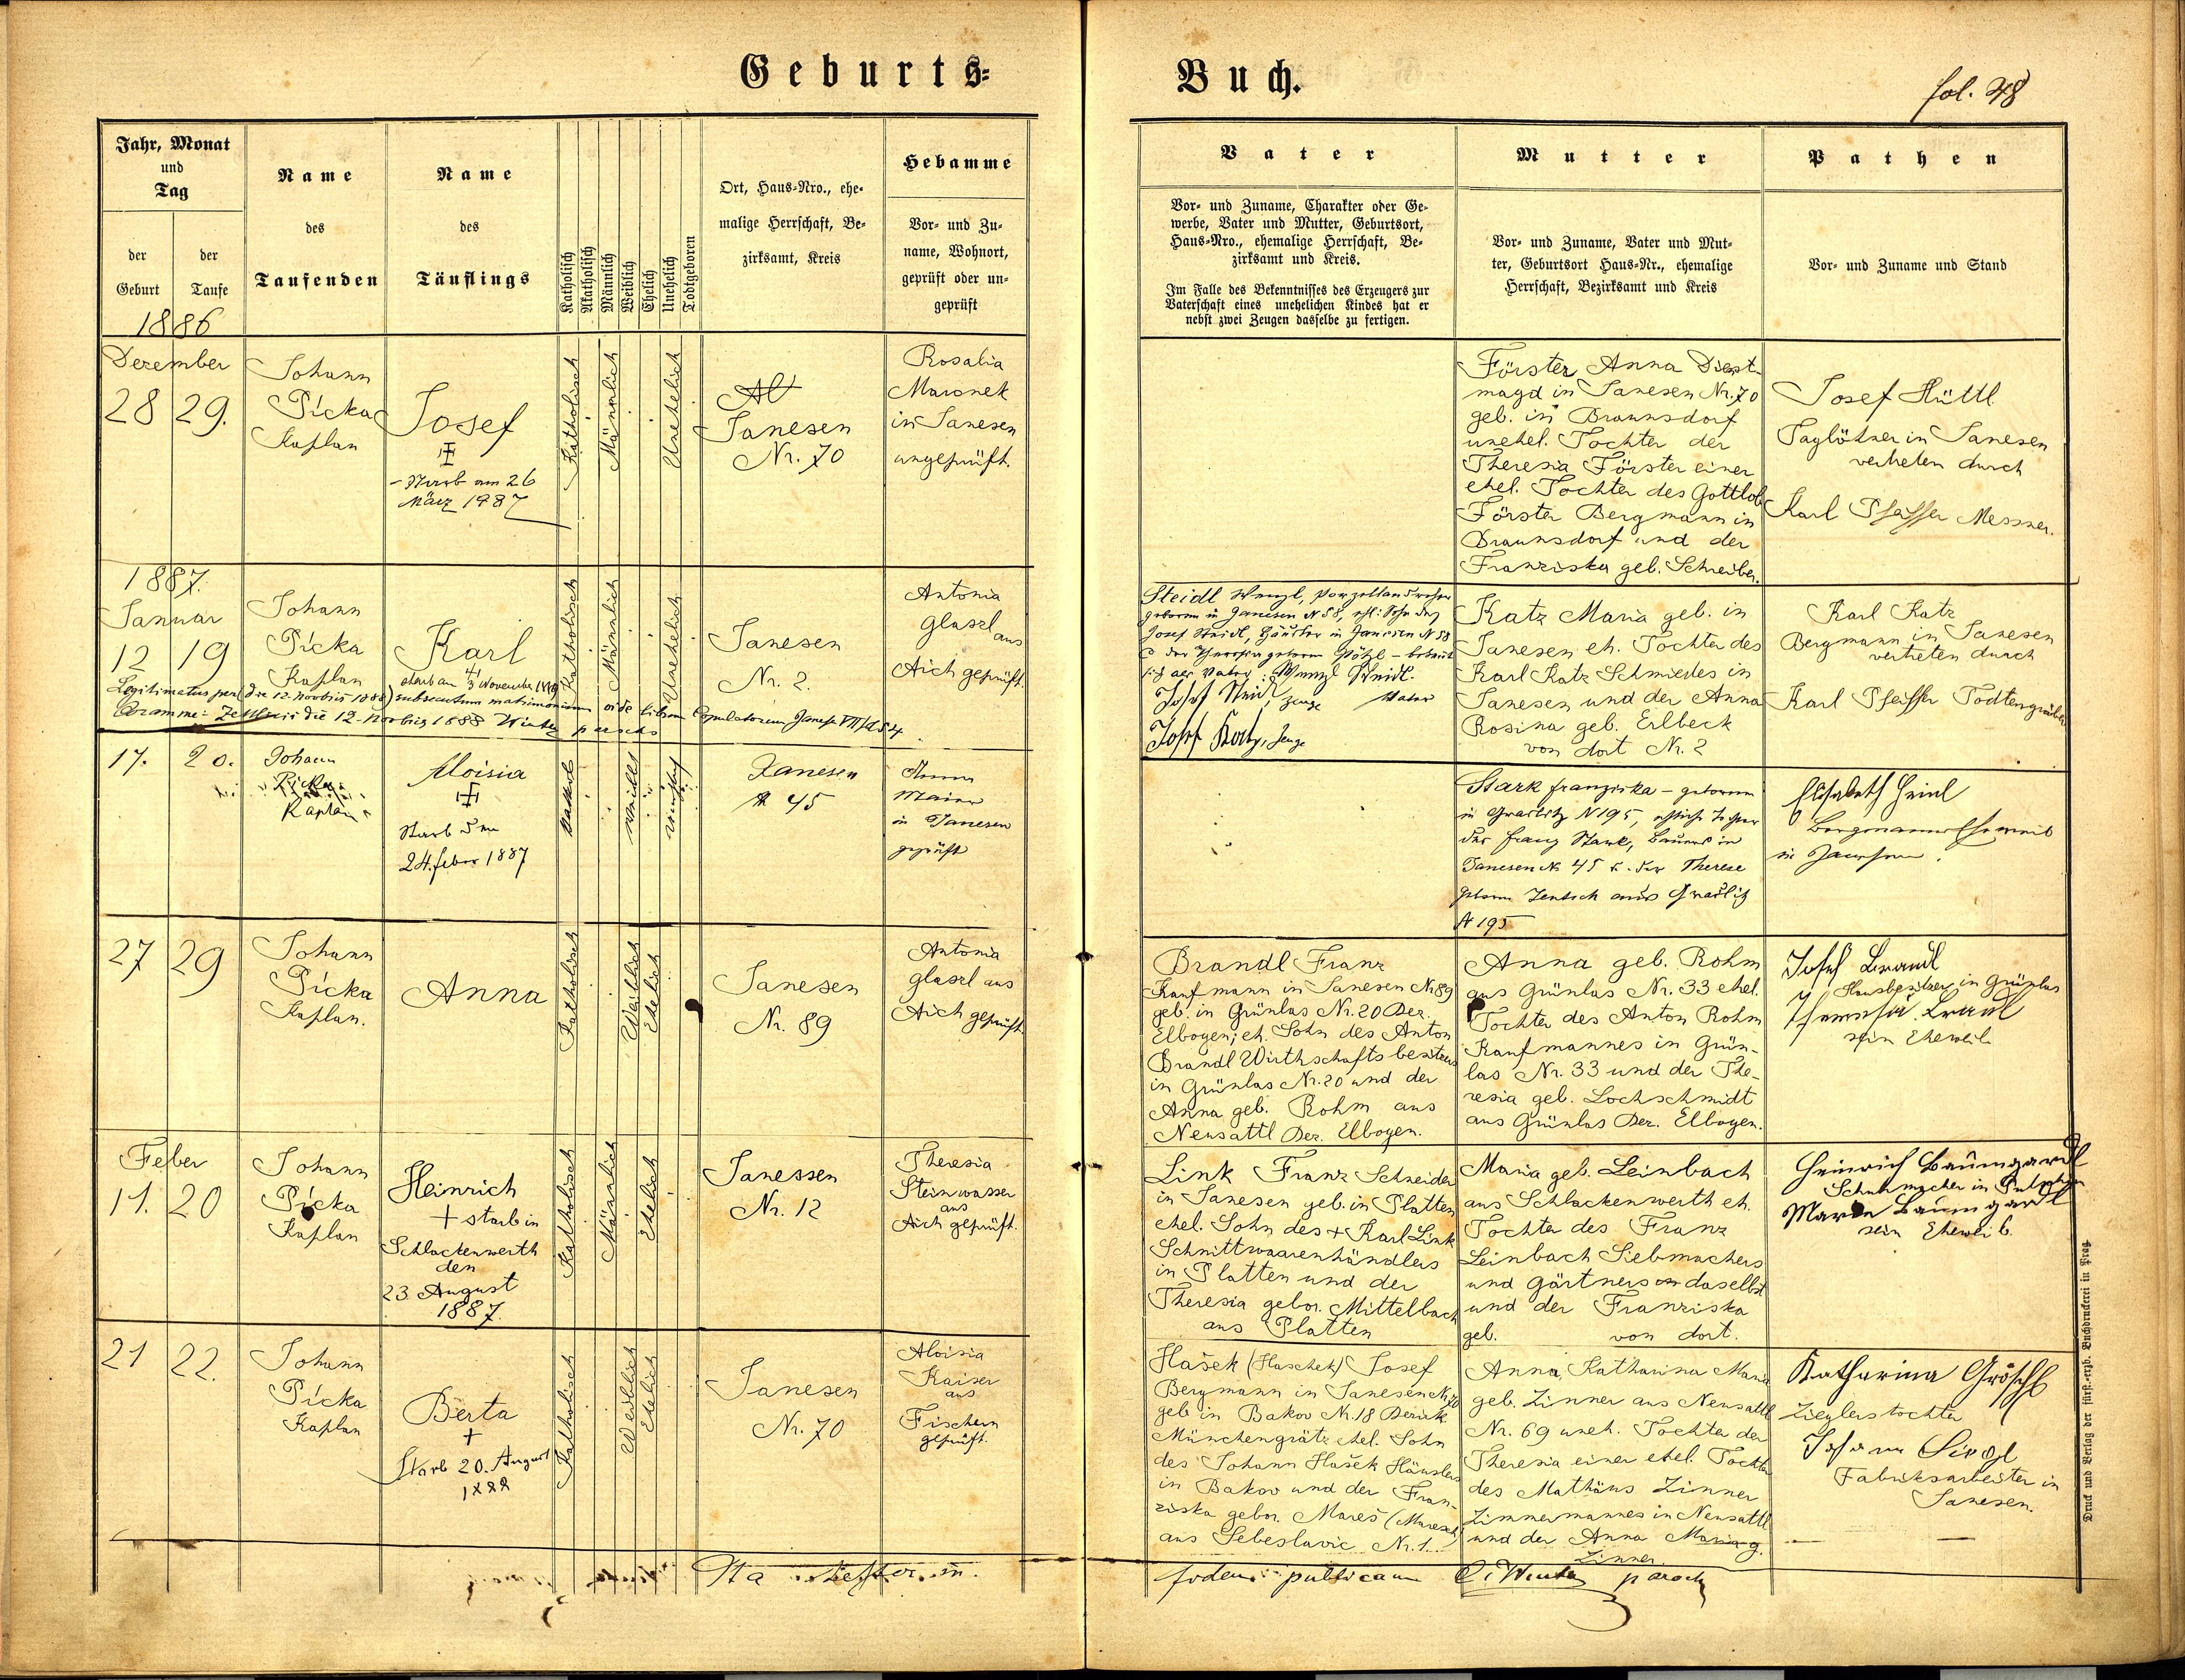 Geburts=
Buch.
fol. 48
Jahr, Monat
und
Tag
der
Geburt
der
Taufe
1886
Name
des
Taufenden
Name
des
Täuflings
Katholisch
Akatholisch
Männlich
Weiblich
Ehelich
Unehelich
Todtgeboren
Ort, Haus=Nro., ehe=
malige Herrschaft, Be=
zirksamt, Kreis
Hebamme
Vor= und Zu=
name, Wohnort,
geprüft oder un=
geprüft
Vater
Vor= und Zuname, Charakter oder Ge=
werbe, Vater und Mutter, Geburtsort,
Haus=Nro., ehemalige Herrschaft, Be=
zirksamt und Kreis.
Im Falle des Bekenntnisses des Erzeugers zur
Vaterschaft eines unehelichen Kindes hat er
nebst zwei Zeugen dasselbe zu fertigen.
Mutter
Vor= und Zuname, Vater und Mut=
ter, Geburtsort Haus=Nr., ehemalige
Herrschaft, Bezirksamt und Kreis
Pathen
Vor= und Zuname und Stand
Dezember
28 29.
Johann
Pícka
Kaplan
Josef
Starb am 26
März 1887
Katholisch
Männlich
Unehelich
Janesen
Nr. 70
Rosalia
Maronek
in Janesen
ungeprüft.
Förster Anna Dienst-
magd in Janesen Nr. 70
geb. in Braunsdorf
unehel. Tochter der
Theresia Förster einer
ehel. Tochter des Gottlob
Förster Bergmann in
Braunsdorf und der
Franziska geb. Schreiber.
Josef Hüttl
Taglöhner in Janesen
vertreten durch
Karl Pfeiffer Messner.
1887.
Januar
12 19
Johann
Pícka
Kaplan
Karl
starb am November
Katholisch
Männlich
Unehelich
Janesen
Nr. 2.
Antonia
Glasel aus
Aich geprüft.
Legitimatus per (die 12. novbris 1888) subsecutum matrimonium vide librum Copulatorum Janess. VII/
die 12. novbris 1888 Winter parochs
Steidl Wenzl, Porzellandreher
geboren in Janesen N 58, ehl: Sohn des
Josef Steidl, Häusler in Janesen N 58
sich als Vater: Wenzl Steidl.
Vater
Josef Steidl, Zeuge
Josef Katz, Zeuge
Katz Maria geb. in
Janesen eh. Tochter des
Karl Katz Schmiedes in
Janesen und der Anna
Rosina geb. Erlbeck
von dort Nr. 2
Karl Katz
Bergmann in Janesen
vertreten durch
Karl Pfeiffer Todtengräber
17. 20.
Johann
Pícka
Kaplan
Aloisia
Starb den
24. feber 1887
Janesen
N 45
Anna
Maier
in Janesen
geprüft
Stark Franziska - geboren
in Graslitz N 195, eheliche Tochter
des Franz Stark, Bauers in
Janesen N 45 u. der Therese
geborne Jentsch aus Graslitz
N 195
Elisabeth Heinl
Bergmanns Eheweib
in Janesen.
27 29
Johann
Pícka
Kaplan.
Anna
Katholisch
Weiblich
Ehelich
Janesen
Nr. 89
Antonia
Glasel aus
Aich geprüft
Brandl Franz
Kaufmann in Janesen Nr 89
geb. in Grünlas Nr. 20 Bez.
Elbogen; eh. Sohn des Anton
Brandl Wirthschaftsbesitzers
in Grünlas Nr. 20 und der
Anna geb. Rohm aus
Neusattl Bez. Elbogen.
Anna geb. Rohm
aus Grünlas Nr. 33 ehel.
Tochter des Anton Rohm
Kaufmannes in Grün-
las Nr. 33 und der The-
resia geb. Lochschmidt
aus Grünlas Bez. Elbogen.
Josef Brandl
Hausbesitzer in Grünlas
Theresia Brandl
sein Eheweib
Feber
11. 20
Johann
Pícka
Kaplan
Heinrich
+ starb in
Schlackenwerth
den
23. August
1887.
Katholisch
Männlich
Ehelich
Janessen
Nr. 12
Theresia
Steinwasser
aus
Aich geprüft.
Link Franz Schneider
in Janesen geb. in Platten
ehel. Sohn des + Karl Link
Schnittwaarenhändlers
in Platten und der
Theresia gebor. Mittelbach
aus Platten
Maria geb. Leinbach
aus Schlackenwerth eh.
Tochter des Franz
Leinbach Siebmachers
und Gärtners daselbst
und der Franziska
geb. von dort.
Heinrich Baumgartl
Schuhmacher in
Marie Baumgartl
sein Eheweib.
21 22.
Johann
Pícka
Kaplan
Berta
+
Starb 20. August
1888
Katholisch
Weiblich
Ehelich
Janesen
Nr. 70
Aloisia
Kaiser
aus
Fischern
geprüft.
Hašek (Haschek) Josef
Bergmann in Janesen Nr 70
geb in Bakov Nr. 18 Bezirk
Münchengrätz ehel. Sohn
des Johann Hašek Häuslers
in Bakov und der Fran-
ziska gebor. Mareš (Maresch)
aus Sebeslavic Nr. 1.
Anna, Katharina Maria
geb. Zinner aus Neusattl
Nr. 69 uneh. Tochter der
Theresia einer ehel. Tochter
des Mathäus Zinner
Zimmermannes in Neusattl
und der Anna Maria g.
Zinner.
Katharina Gröschl
Zieglerstochter
Johann Siegl
Fabriksarbeiter in
Janesen.
Ita testor in
fidem publicam Winter parochs
Druck und Verlag der fürst.=erzb. Buchdruckerei in Prag.